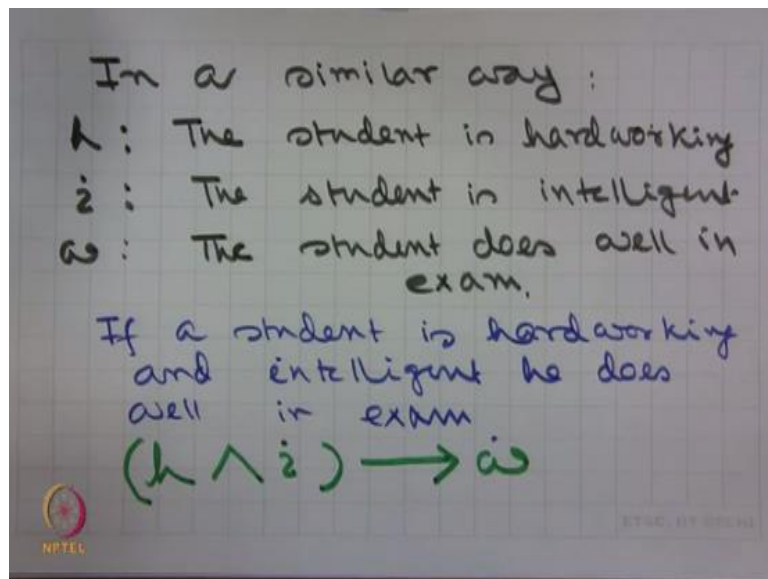 In a similar way :
h : The student is hardworking
i : The student is intelligent.
w : The student does well in
exam.
If a student is hardworking
and intelligent he does
well in exam
(h ∧ i) ⟶ w
NPTEL
ETSC, IIT DELHI